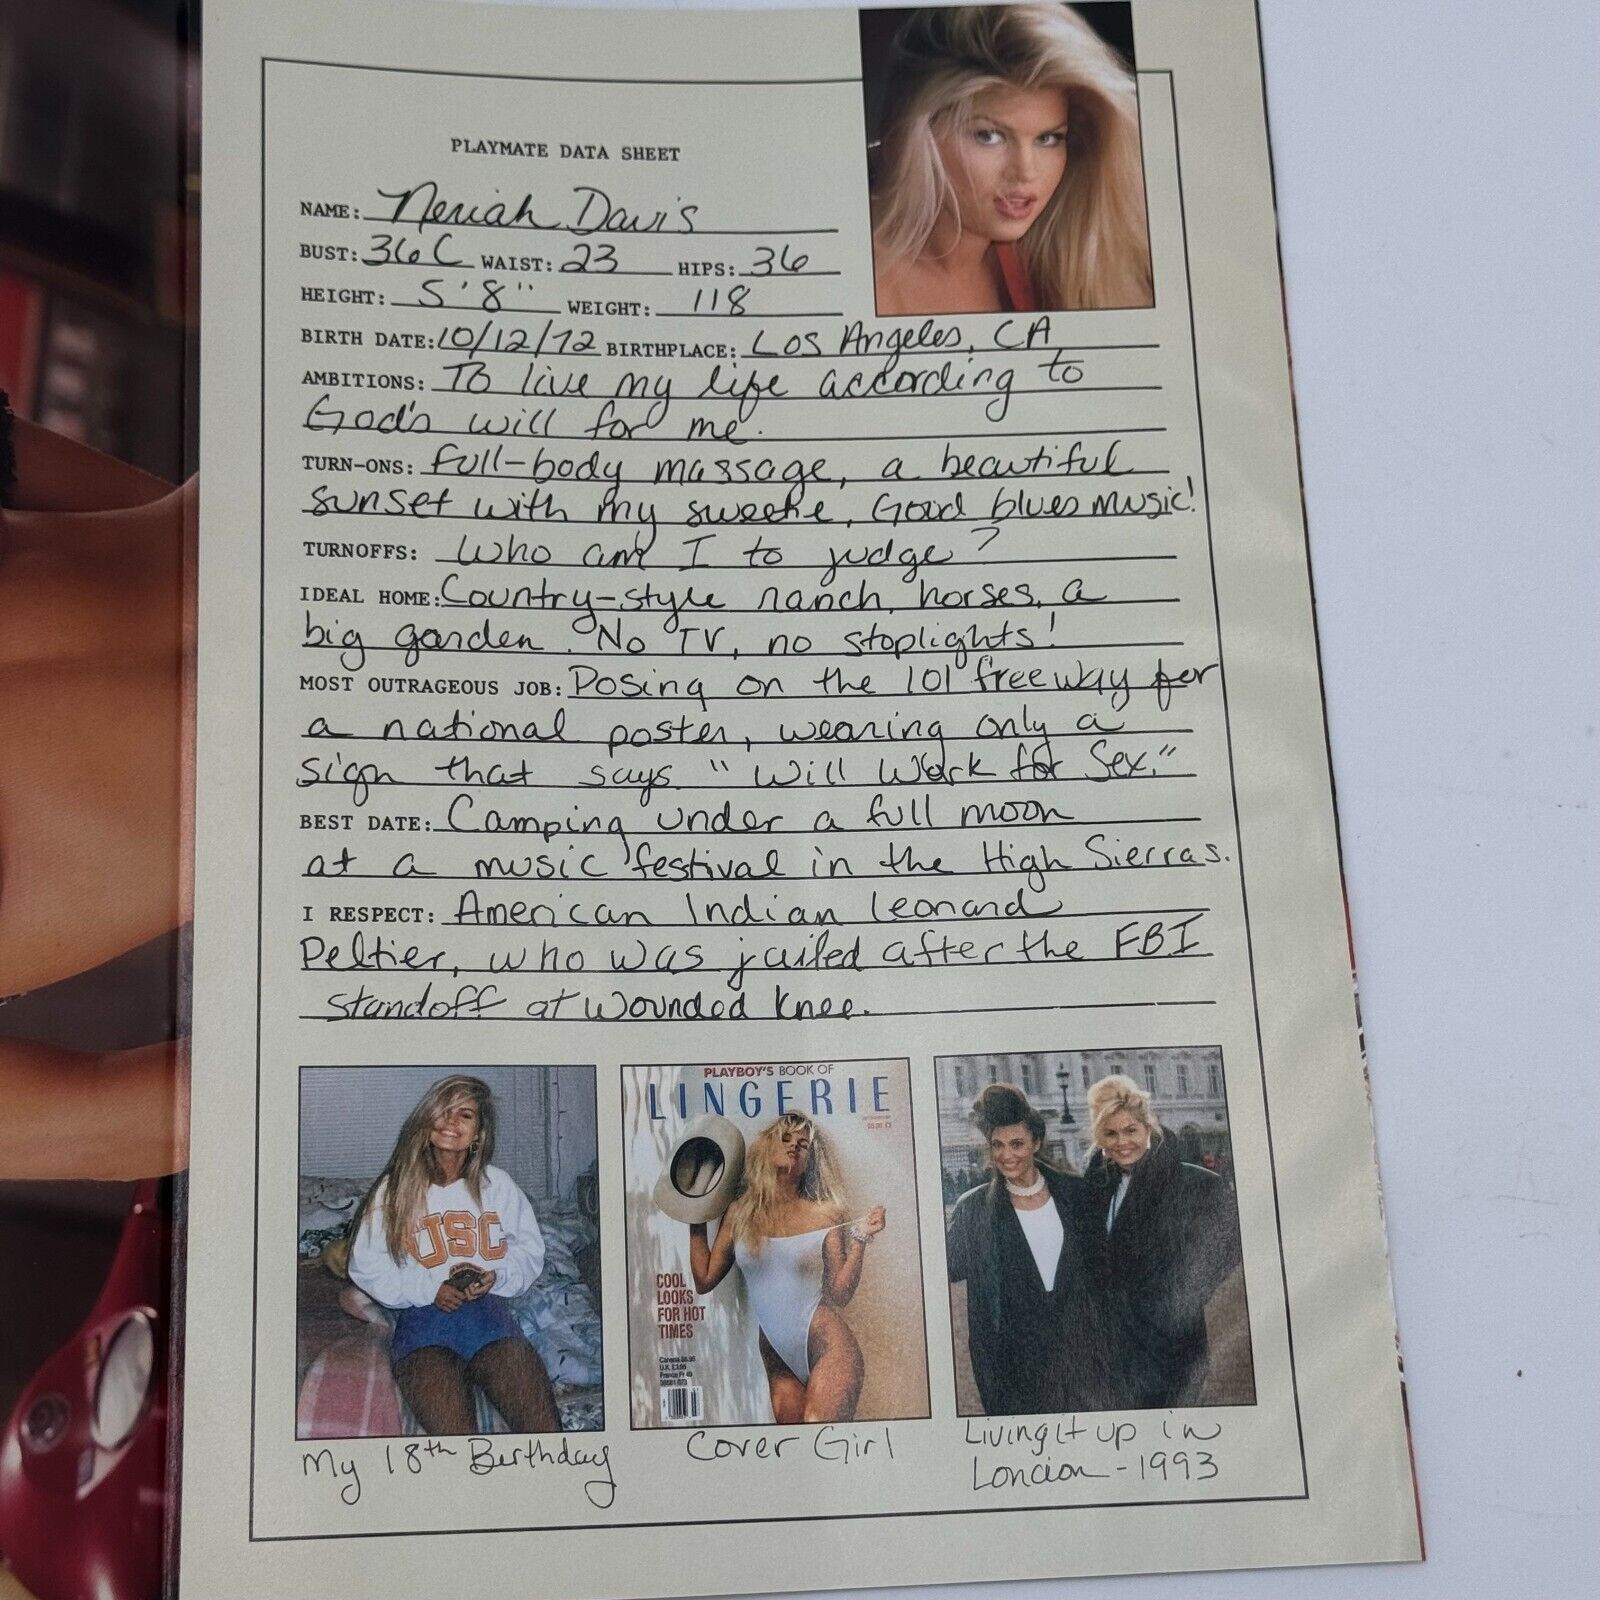 PLAYMATE DATA SHEET
NAME: Neriah Davis
BUST: 36C WAIST: 23 HIPS: 36
HEIGHT: 5'8" WEIGHT: 118
BIRTH DATE: 10/12/72 BIRTHPLACE: Los Angeles, CA
AMBITIONS: To live my life according to
God's will for me.
TURN-ONS: Full-body massage, a beautiful
sunset with my sweetie, Good blues music!
TURNOFFS: Who am I to judge?
IDEAL HOME: Country-style ranch, horses, a
big garden. No TV, no stoplights!
MOST OUTRAGEOUS JOB: Posing on the 101 freeway for
a national poster, wearing only a
sign that says "Will Work for Sex."
BEST DATE: Camping under a full moon
at a music festival in the High Sierras.
I RESPECT: American Indian Leonard
Peltier, who was jailed after the FBI
standoff at Wounded Knee.
USC
PLAYBOY'S BOOK OF
LINGERIE
COOL
LOOKS
FOR HOT
TIMES
My 18th Birthday
Cover Girl
Living it up in
London - 1993